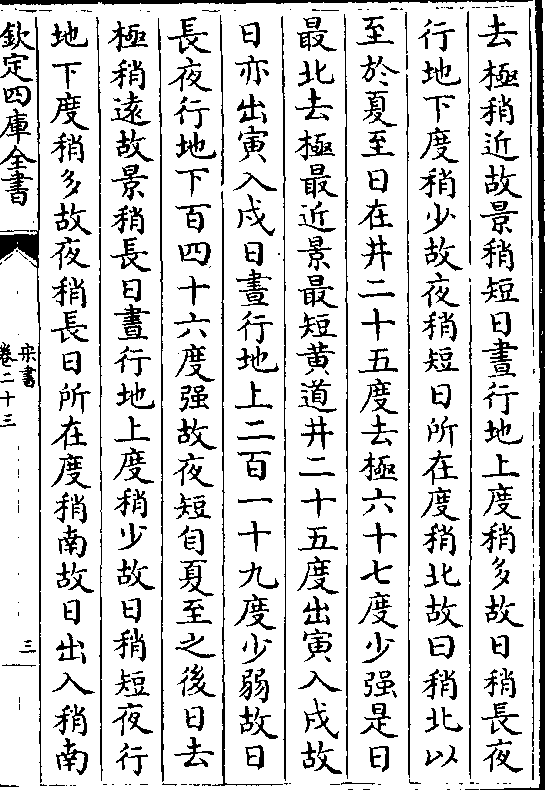 去極稍近故景稍短日晝行地上度稍多故日稍長夜
行地下度稍少故夜稍短日所在度稍北故日稍北以
至於夏至日在井二十五度去極六十七度少强是日
最北去極最近景最短黄道井二十五度出寅入戌故
日亦出寅入戌日晝行地上二百一十九度少弱故日
長夜行地下百四十六度强故夜短自夏至之後日去
極稍遠故景稍長日晝行地上度稍少故日稍短夜行
地下度稍多故夜稍長日所在度稍南故日出入稍南
欽定四庫全書
宋書
卷二十三
三